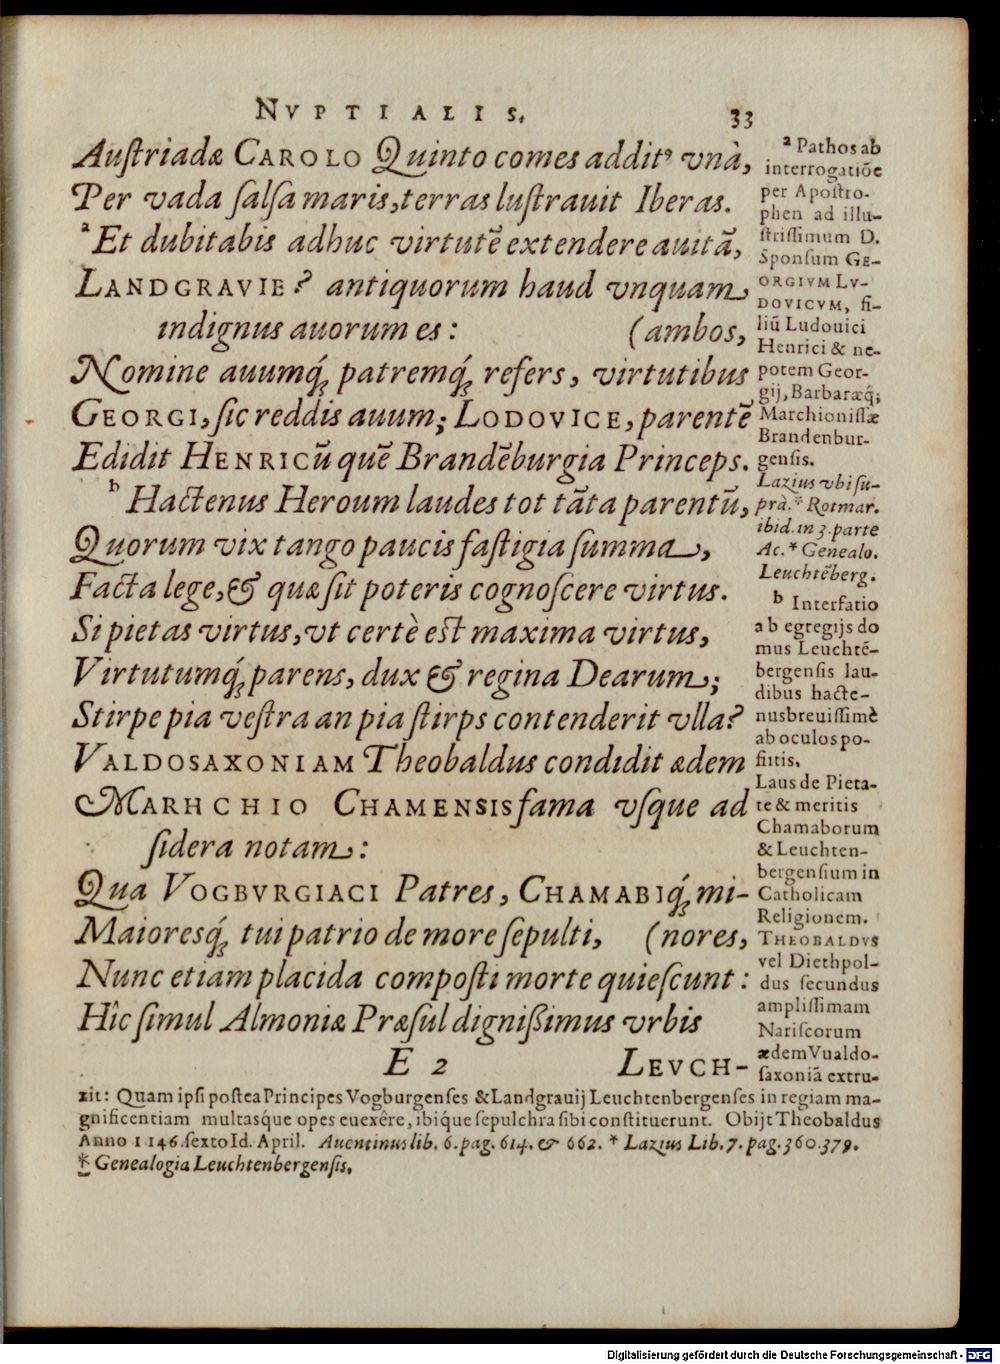 NVPTIALIS. 33
Auſtriadæ CAROLO Quinto comes additꝰ vnà,
Per vada ſalſa maris, terras luſtrauit Iberas.
ᵃ Et dubitabis adhuc virtutē extendere auitā,
LANDGRAVIE? antiquorum haud vnquam
indignus auorum es: (ambos,
Nomine auumq́; patremq́; refers, virtutibus
GEORGI, ſic reddis auum; LODOVICE, parentē
Edidit HENRICū quē Brandēburgia Princeps.
ᵇ Hactenus Heroum laudes tot tāta parentū,
Quorum vix tango paucis faſtigia ſumma,
Facta lege, & quæ ſit poteris cognoſcere virtus.
Si pietas virtus, vt certè eſt maxima virtus,
Virtutumq́; parens, dux & regina Dearum;
Stirpe pia veſtra an pia ſtirps contenderit vlla?
VALDOSAXONIAM Theobaldus condidit ædem
MARHCHIO CHAMENSIS fama vſque ad
ſidera notam:
Qua VOGBVRGIACI Patres, CHAMABIq́; mi-
Maioresq́; tui patrio de more ſepulti, (nores,
Nunc etiam placida compoſti morte quieſcunt:
Hîc ſimul Almoniæ Præſul digniſſimus vrbis
E 2 LEVCH-
ᵃ Pathos ab
interrogatiōe
per Apoſtro-
phen ad illu-
ſtriſſimum D.
Sponſum GE-
ORGIVM LV-
DOVICVM, fi-
liū Ludouici
Henrici & ne-
potem Geor-
gij, Barbaræq́;
Marchioniſſæ
Brandenbur-
genſis.
Lazius vbi ſu-
prà. * Rotmar.
ibid. in 3. parte
Ac. * Genealo.
Leuchtēberg.
ᵇ Interfatio
ab egregijs do
mus Leuchtē-
bergenſis lau-
dibus hacte-
nus breuiſſimè
ab oculos po-
ſitis.
Laus de Pieta-
te & meritis
Chamaborum
& Leuchten-
bergenſium in
Catholicam
Religionem.
THEOBALDVS
vel Diethpol-
dus ſecundus
ampliſſimam
Nariſcorum
ædem Vualdo-
ſaxoniā extru-
xit: Quam ipſi poſtea Principes Vogburgenſes & Landgrauij Leuchtenbergenſes in regiam ma-
gnificentiam multasque opes euexêre, ibíque ſepulchra ſibi conſtituerunt. Obijt Theobaldus
Anno 1146. ſexto Id. April. Auentinus lib. 6. pag. 614. & 662. * Lazius Lib. 7. pag. 360. 379.
* Genealogia Leuchtenbergenſis.
Digitalisierung gefördert durch die Deutsche Forschungsgemeinschaft - DFG